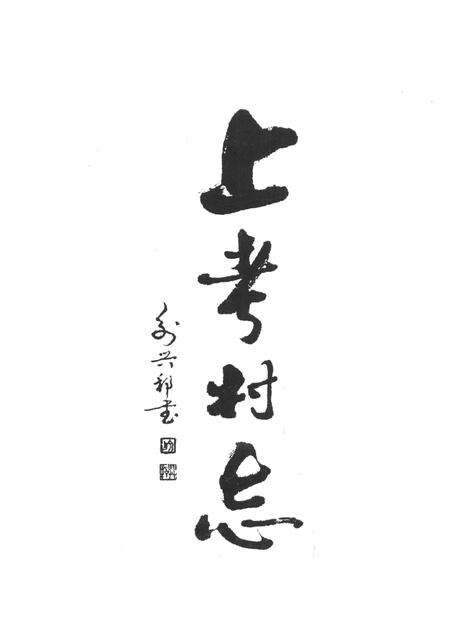 上考村志
兴邦书